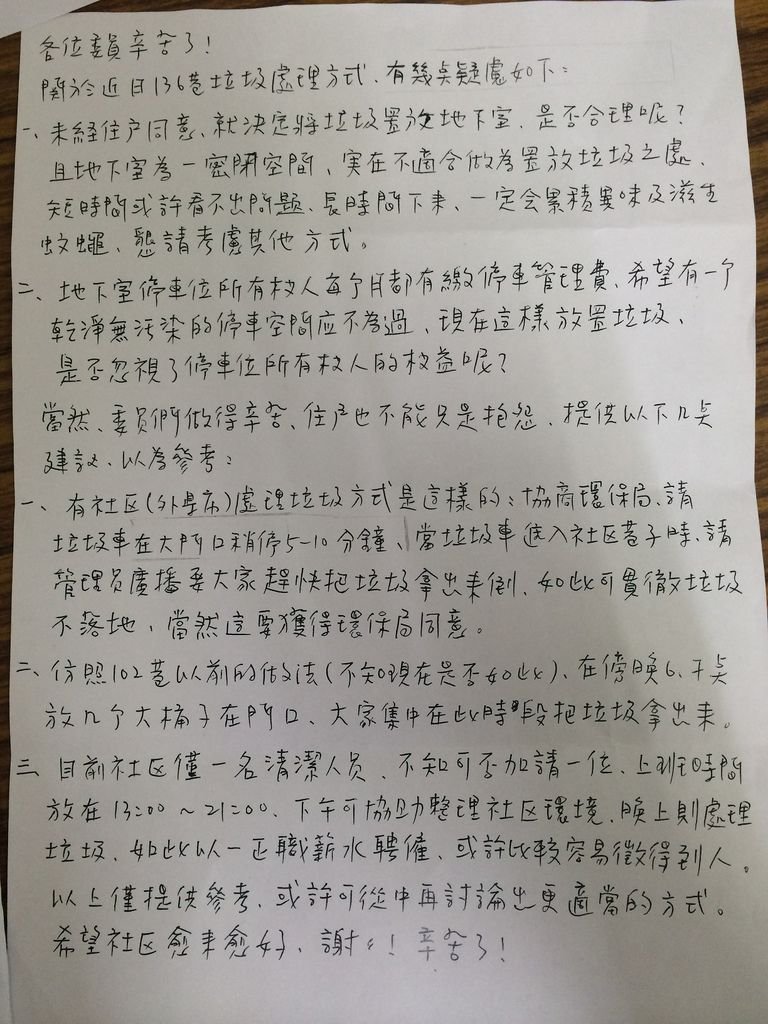 各位委員辛苦了!
關於近日136巷垃圾處理方式、有幾點疑慮如下:
一、未經住戶同意、就決定將垃圾置放地下室、是否合理呢?
且地下室為一密閉空間、実在不適合做為置放垃圾之處、
短時間或許看不出問題、長時間下來、一定会累積異味及滋生
蚊蠅、懇請考慮其他方式。
二、地下室停車位所有权人每个月都有繳停車管理費、希望有一个
乾淨無污染的停車空間应不為過、現在這樣放置垃圾、
是否忽視了停車位所有权人的权益呢?
當然、委員們做得辛苦、住戶也不能只是抱怨、提供以下几点
建议、以為參考:
一、有社区(外學府)處理垃圾方式是這樣的:協商環保局、請
垃圾車在大門口稍停5-10分鐘、當垃圾車進入社区巷子時、請
管理员廣播要大家趕快把垃圾拿出來倒、如此可貫徹垃圾
不落地、當然這要獲得環保局同意。
二、仿照102巷以前的做法(不知現在是否如此)、在傍晚6、7点
放几个大桶子在門口、大家集中在此時段把垃圾拿出來。
三、目前社区僅一名清潔人员、不知可否加請一位、上班時間
放在13:00~21:00、下午可協助整理社区環境、晚上則處理
垃圾、如此以一正職薪水聘僱、或許比較容易徵得到人。
以上僅提供參考、或許可從中再討論出更適當的方式。
希望社区愈來愈好、謝々!辛苦了!